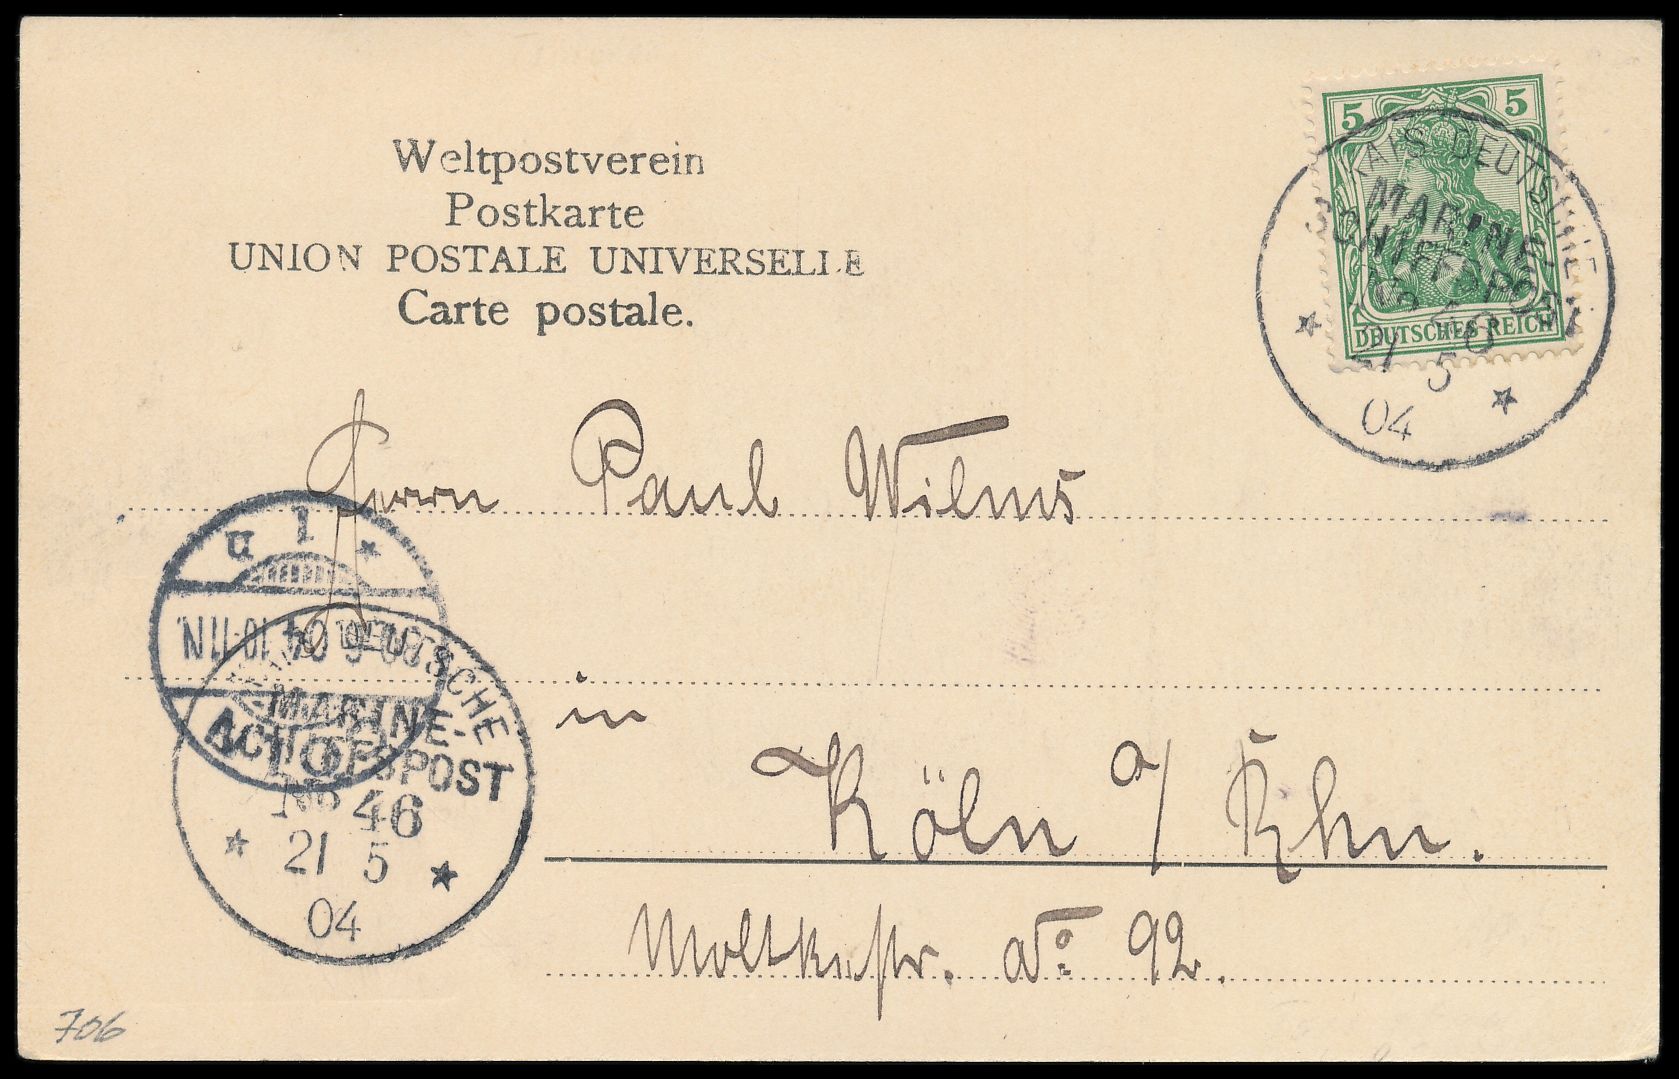 Weltpostverein
Postkarte
UNION POSTALE UNIVERSELLE
Carte postale.
5 5
DEUTSCHES REICH
DEUTSCHE
MARINE-
SCHIFFSPOST
No 46
21 5
04
Herrn Paul Wilms
in
Köln a/Rhn.
Moltkestr. No 92.
10-11N.
DEUTSCHE
MARINE-
SCHIFFSPOST
No 46
21 5
04
706